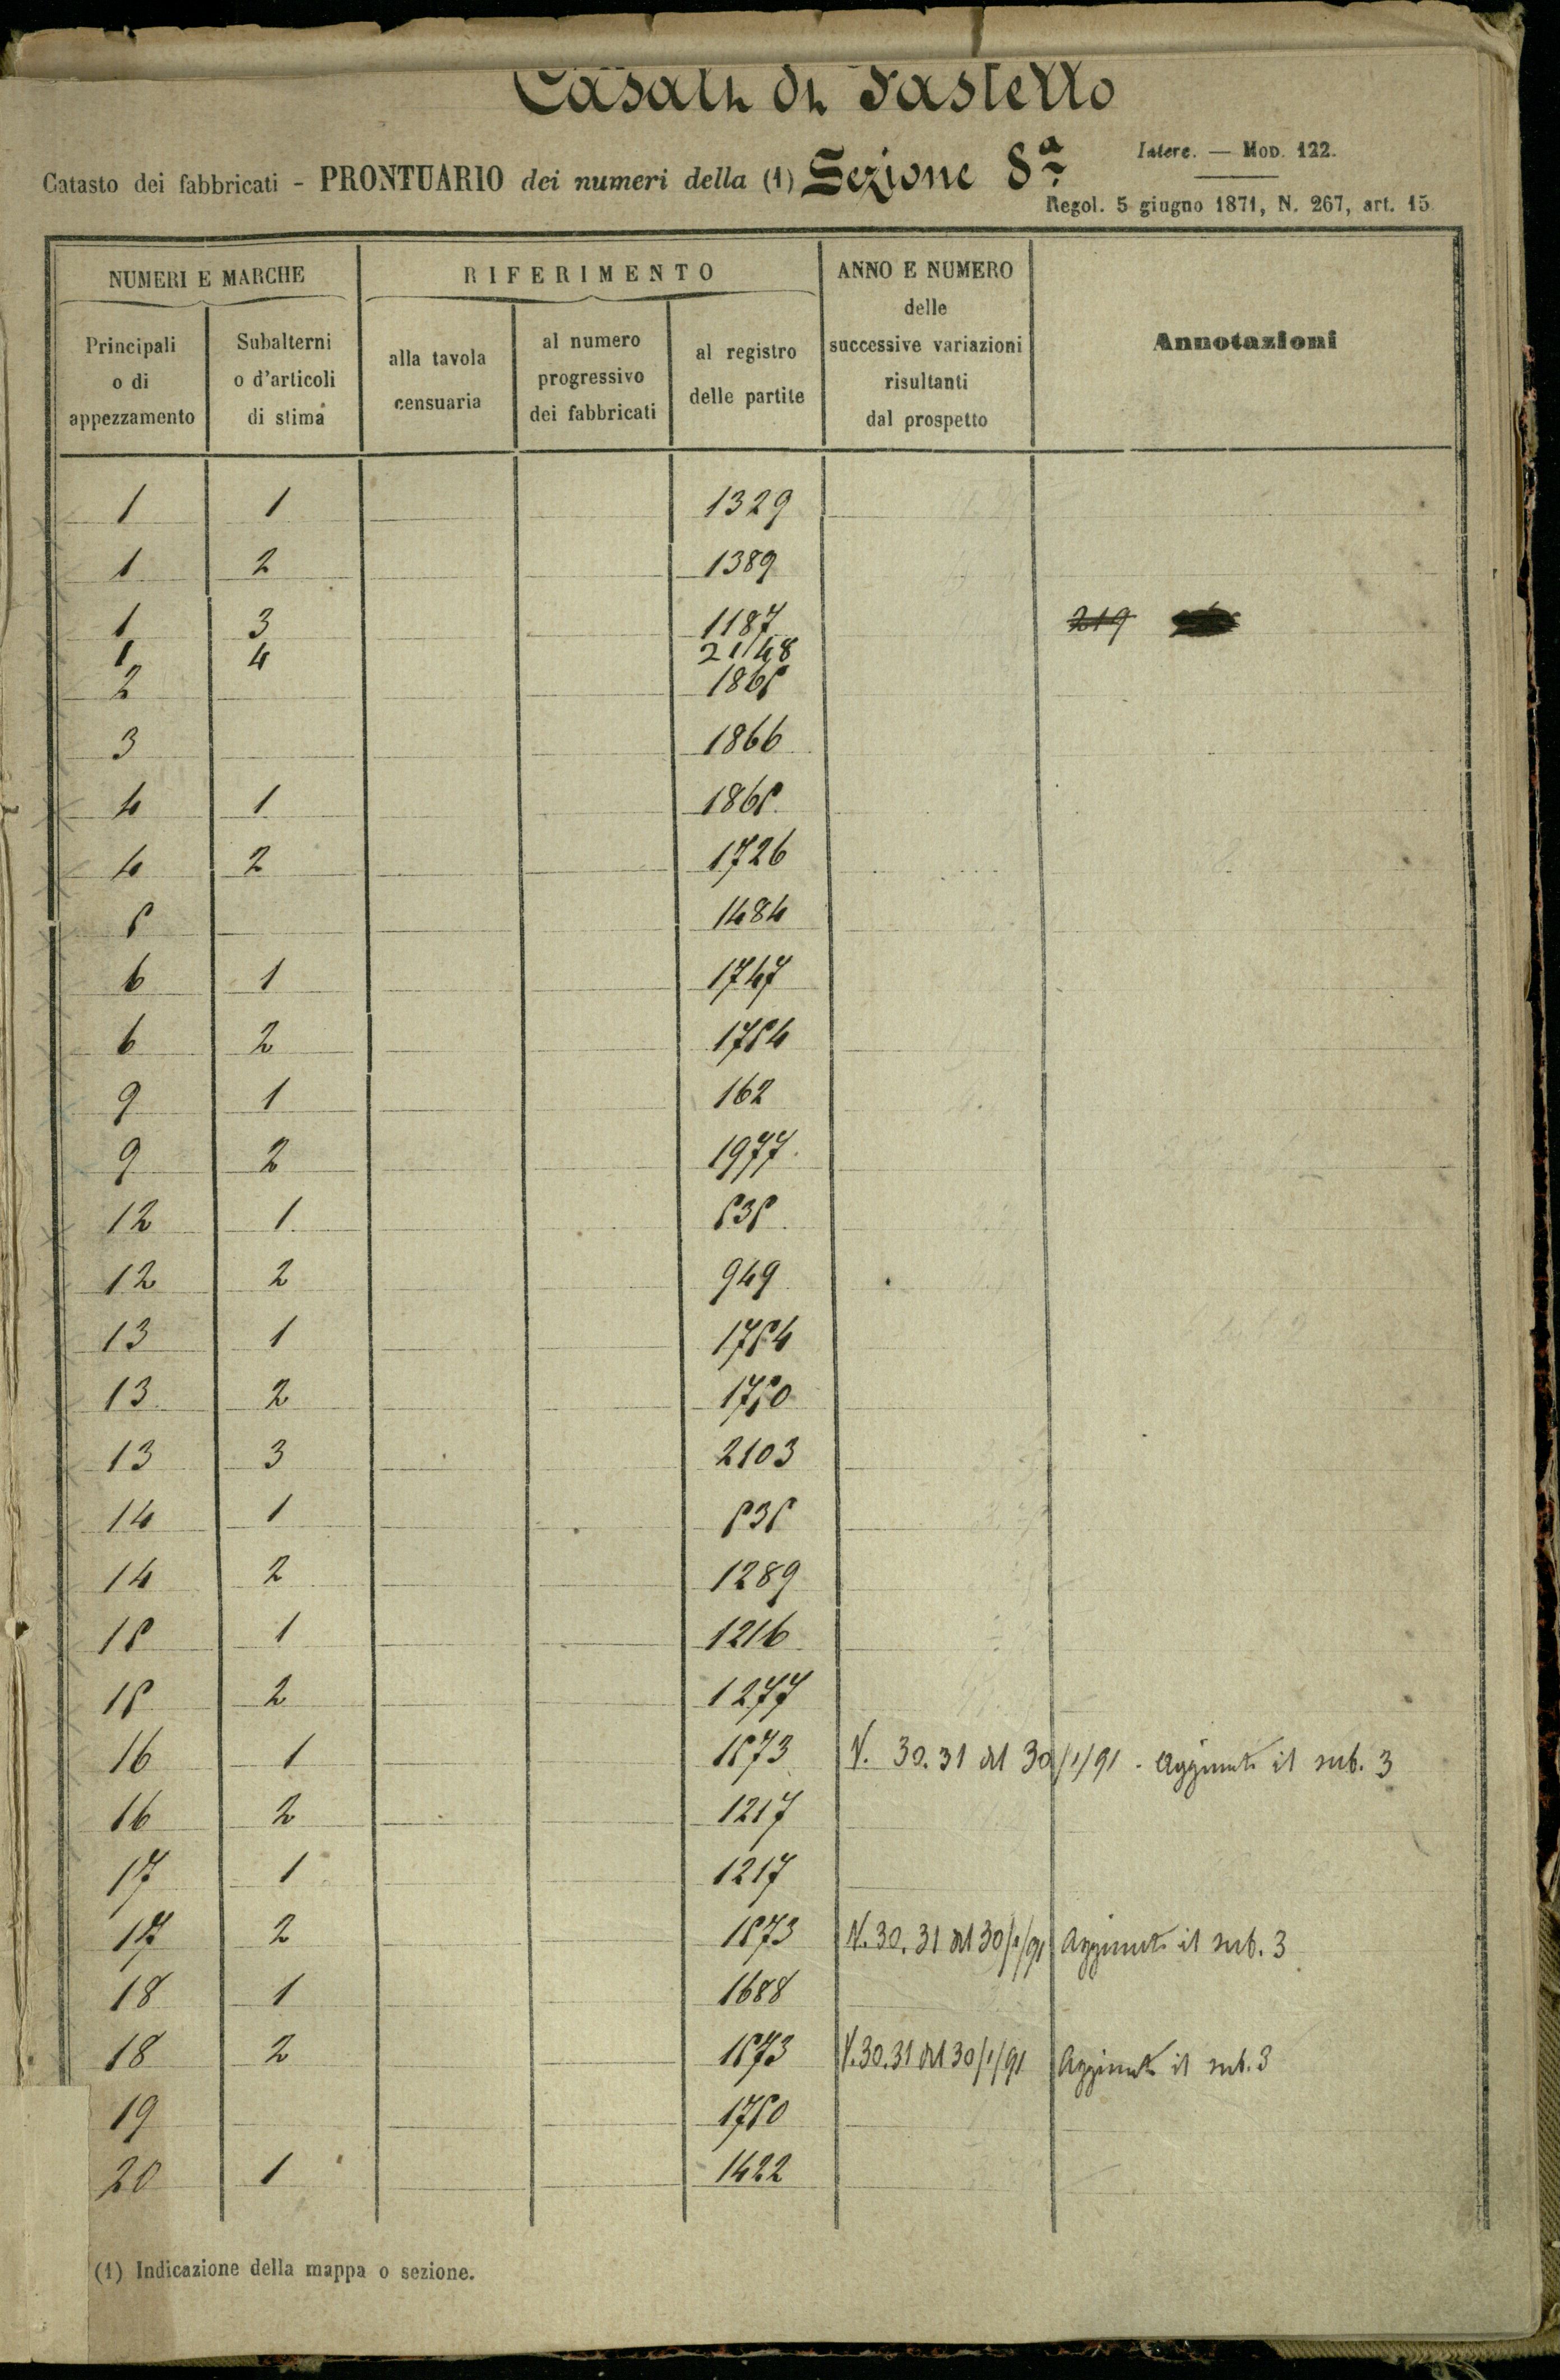 Casali di Fastello
Interc. — Mod. 122.
Catasto dei fabbricati - PRONTUARIO dei numeri della (1) Sezione 8ª
Regol. 5 giugno 1871, N. 267, art. 15
NUMERI E MARCHE
RIFERIMENTO
ANNO E NUMERO delle successive variazioni risultanti dal prospetto
Annotazioni
Principali o di appezzamento
Subalterni o d'articoli di stima
alla tavola censuaria
al numero progressivo dei fabbricati
al registro delle partite
1 1 1329
1 2 1389
1 3 1187 219
1 4 2148
2 1865
3 1866
4 1 1865
4 2 1726
5 1484
6 1 1747
6 2 1754
9 1 162
9 2 1977
12 1 535
12 2 949
13 1 1754
13 2 1750
13 3 2103
14 1 535
14 2 1289
15 1 1216
15 2 1277
16 1 1573 V. 30.31 del 30/1/91 - Aggiunto il sub. 3
16 2 1217
17 1 1217
17 2 1573 V. 30.31 del 30/1/91 Aggiunto il sub. 3
18 1 1688
18 2 1573 V. 30.31 del 30/1/91 Aggiunto il sub. 3
19 1750
20 1 1422
(1) Indicazione della mappa o sezione.